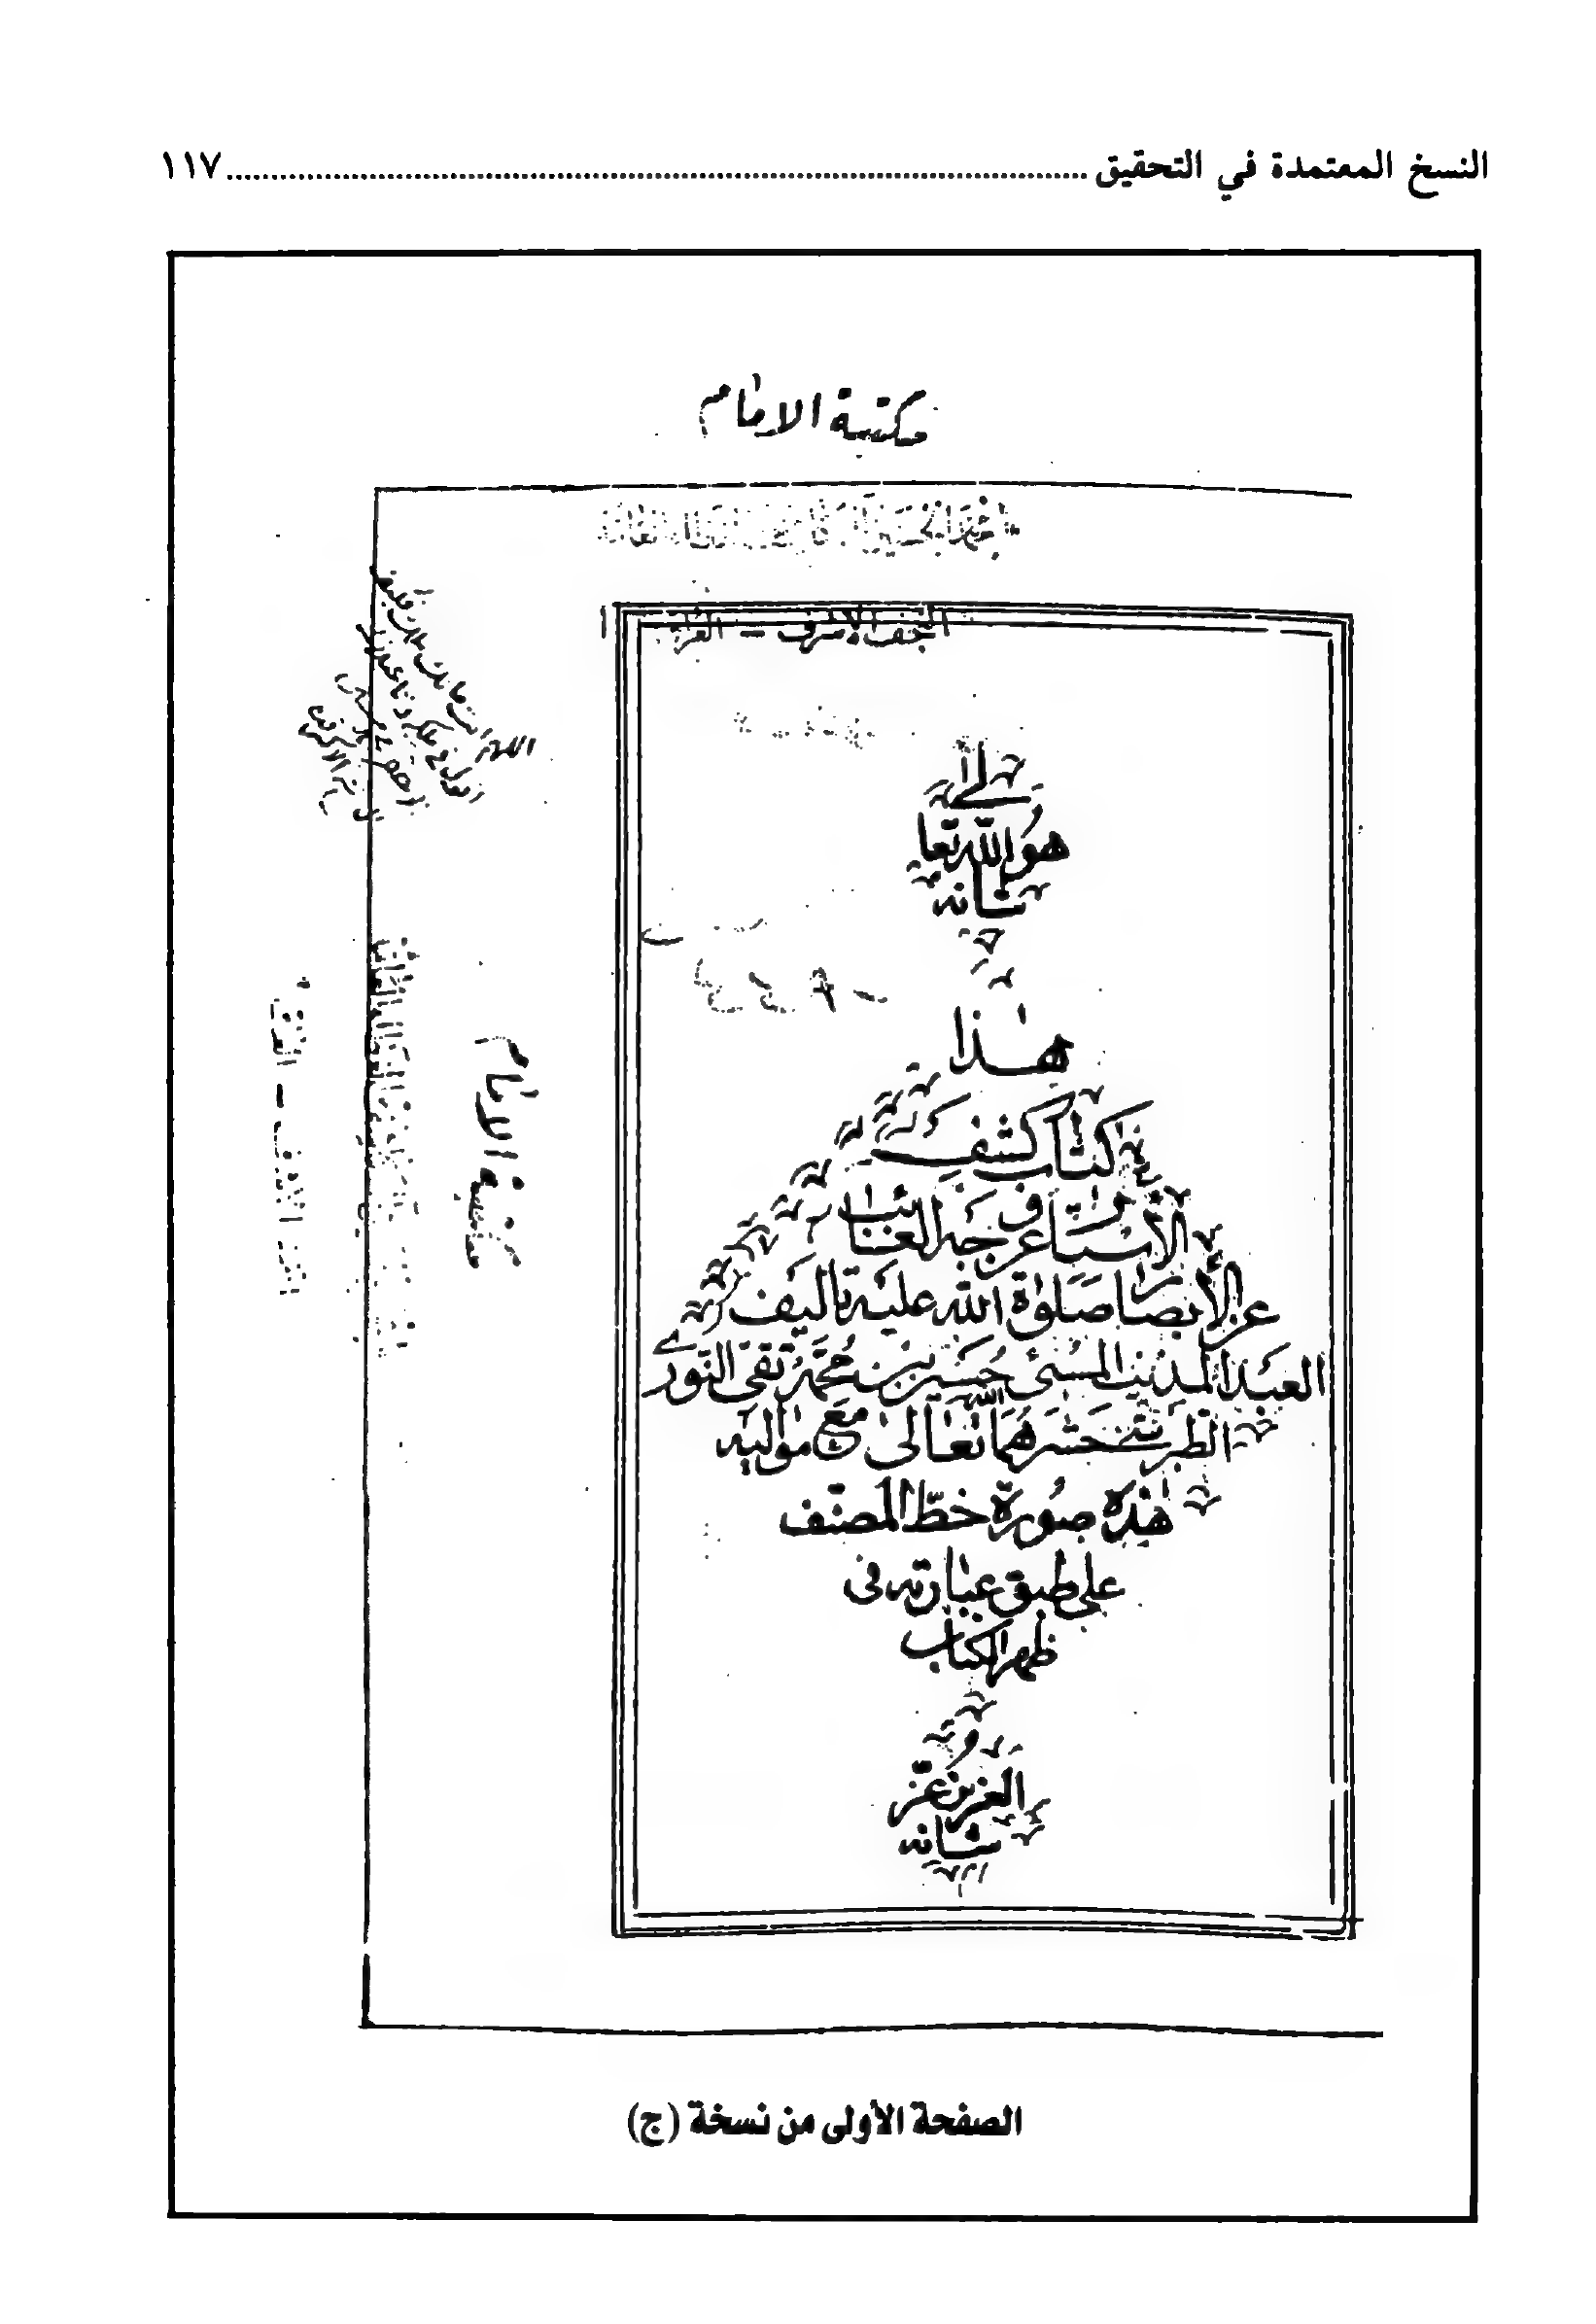 النسخ المعتمدة في التحقيق ........ ١١٧
مكتبة الامام
النجف الاشرف - العراق
هو الله تعالى
شانه
هذا
كتاب كشف
الأستار عن وجه الغائب
عن الأبصار صلوة الله عليه تأليف
العبد المذنب المسئ حسين بن محمد تقى النورى
الطبرسى حشرهما الله تعالى مع مواليه
هذه صورة خط المصنف
على طبق عبارته فى
ظهر الكتاب
العزيز عز
شانه
مكتبة الامام
الصفحة الأولى من نسخة (ج)